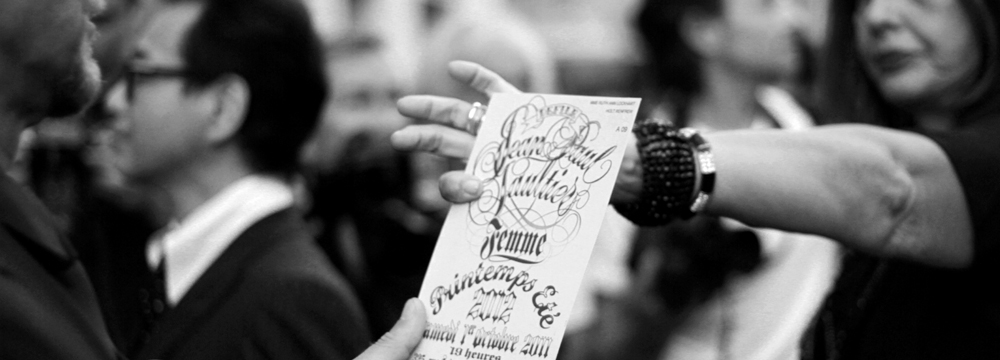 Jean Paul
Gaultier
Femme
Printemps Eté
2012
Samedi 1er Octobre 2011
19 heures